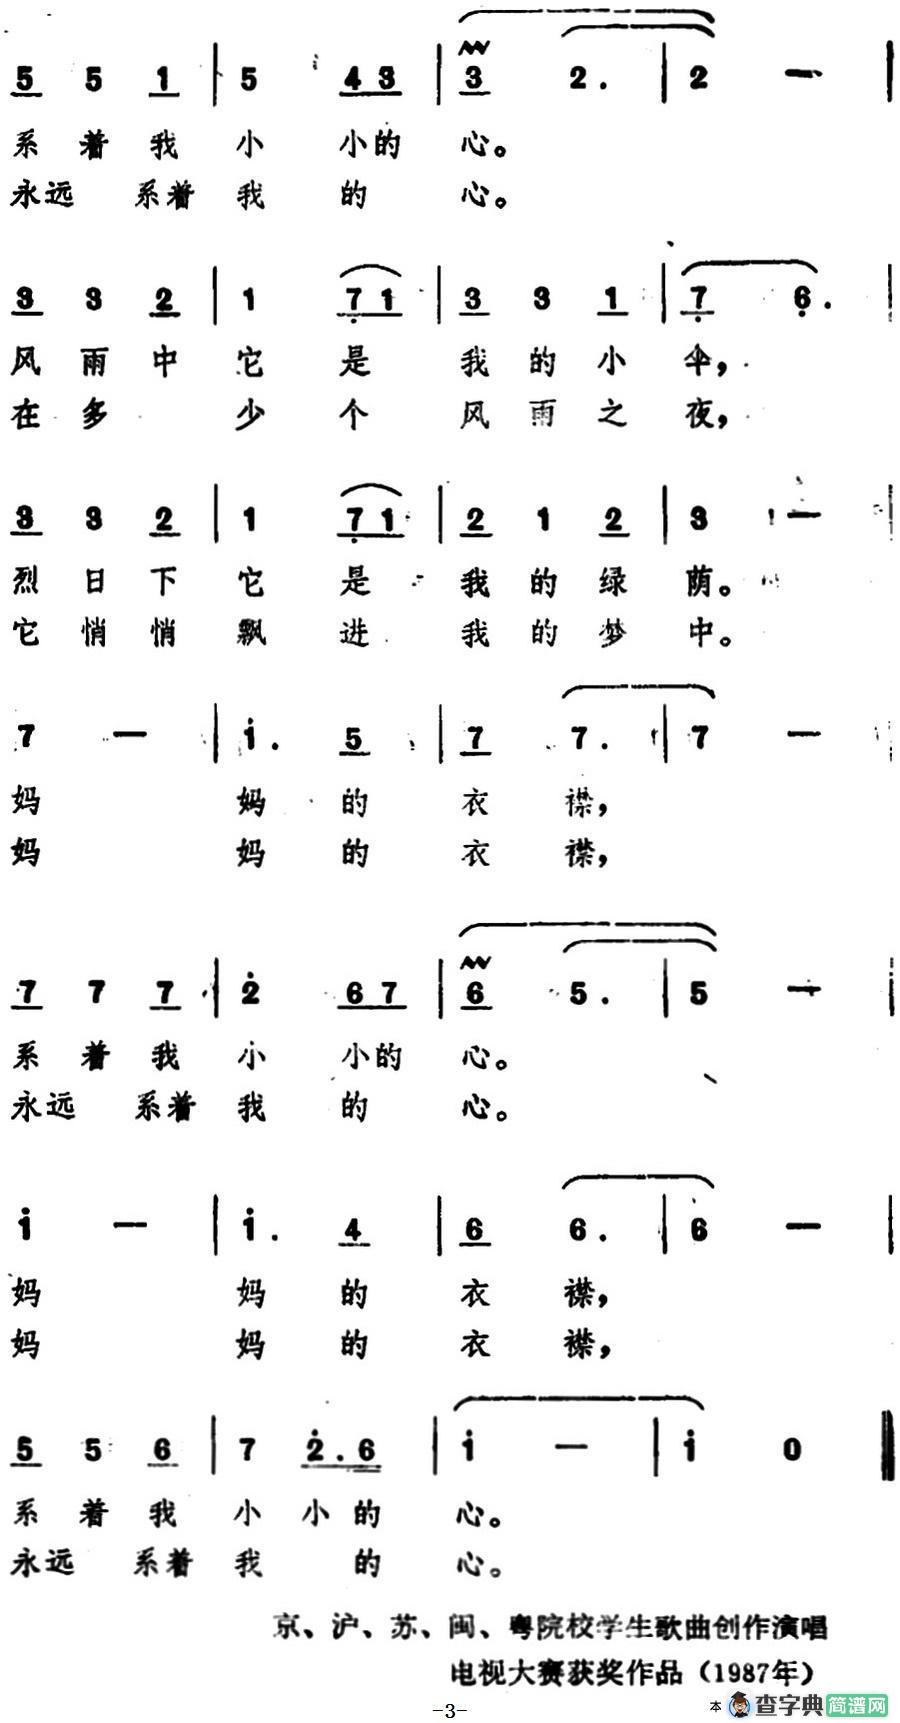 5 5 1 | 5 4 3 | 3 2. | 2 — |
系着我小小的心。
永远系着我的心。
3 3 2 | 1 7 1 | 3 3 1 | 7 6. |
风雨中它是我的小伞，
在多少个风雨之夜，
3 3 2 | 1 7 1 | 2 1 2 | 3 — |
烈日下它是我的绿荫。
它悄悄飘进我的梦中。
7 — | i. 5 | 7 7. | 7 — |
妈妈的衣襟，
妈妈的衣襟，
7 7 7 | 2 6 7 | 6 5. | 5 — |
系着我小小的心。
永远系着我的心。
i — | i. 4 | 6 6. | 6 — |
妈妈的衣襟，
妈妈的衣襟，
5 5 6 | 7 2. 6 | i — | i 0
系着我小小的心。
永远系着我的心。
京、沪、苏、闽、粤院校学生歌曲创作演唱
电视大赛获奖作品（1987年）
-3-
本 查字典 简谱网